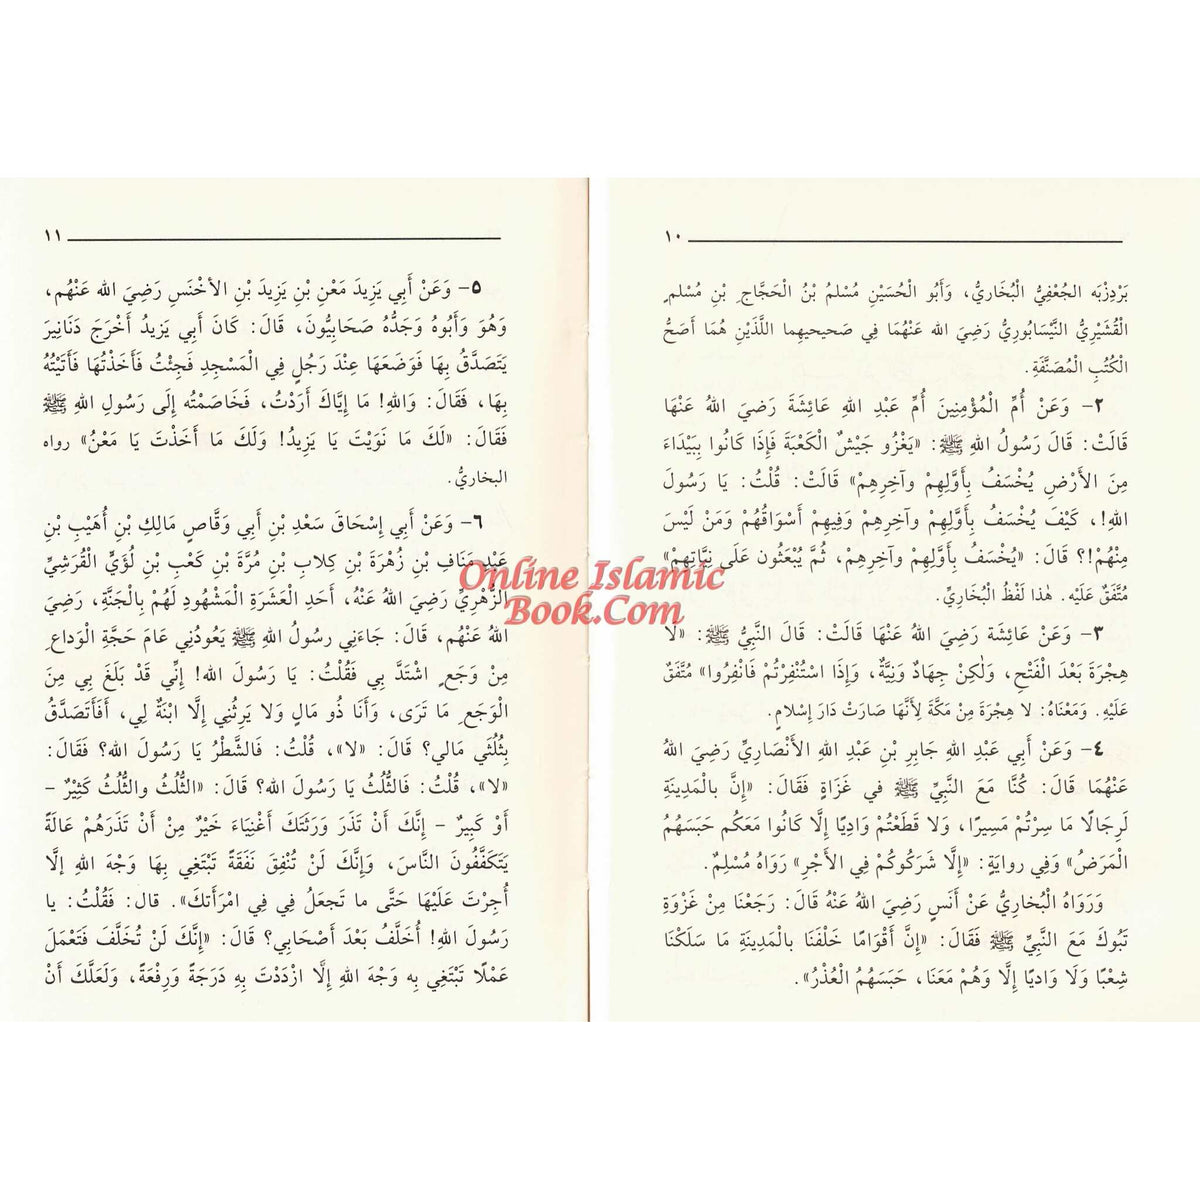 ١٠
بَرْدِزْبَه الجُعْفِيُّ الْبُخَارِيُّ، وَأَبُو الْحُسَيْنِ مُسْلمُ بْنُ الْحَجَّاجِ بْنِ مُسْلمٍ
الْقُشَيْرِيُّ النَّيْسَابُورِيُّ رَضِيَ الله عَنْهُمَا فِي صَحيحيهِما اللَّذَيْنِ هُمَا أَصَحُّ
الْكُتُبِ الْمُصَنَّفَةِ.
٢- وَعَنْ أُمِّ الْمُؤْمِنِينَ أُمِّ عَبْدِ اللهِ عَائِشَةَ رَضيَ اللهُ عَنْهَا
قَالَتْ: قَالَ رَسُولُ اللهِ ﷺ: «يَغْزُو جَيْشٌ الْكَعْبَةَ فَإِذَا كَانُوا بِبَيْدَاءَ
مِنَ الأَرْضِ يُخْسَفُ بِأَوَّلِهِمْ وآخِرِهِمْ» قَالَتْ: قُلْتُ: يَا رَسُولَ
اللهِ!، كَيْفَ يُخْسَفُ بِأَوَّلِهِمْ وآخِرِهِمْ وَفِيهِمْ أَسْوَاقُهُمْ وَمَنْ لَيْسَ
مِنْهُمْ!؟ قَالَ: «يُخْسَفُ بِأَوَّلِهِمْ وآخِرِهِمْ، ثُمَّ يُبْعَثُون عَلَى نِيَّاتِهِمْ»
مُتَّفَقٌ عَلَيْه. هٰذا لَفْظُ الْبُخَارِيِّ.
٣- وَعَنْ عَائِشَة رَضِيَ اللهُ عَنْهَا قَالَتْ: قَالَ النَّبِيُّ ﷺ: «لَا
هِجْرَةَ بَعْدَ الْفَتْحِ، وَلَٰكِنْ جِهَادٌ وَنِيَّةٌ، وَإِذَا اسْتُنْفِرْتُمْ فَانْفِرُوا» مُتَّفَقٌ
عَلَيْهِ. وَمَعْنَاهُ: لا هِجْرَةَ مِنْ مَكَّةَ لِأَنَّهَا صَارَتْ دَارَ إِسْلامٍ.
٤- وَعَنْ أَبِي عَبْدِ اللهِ جَابِرِ بْنِ عَبْدِ اللهِ الأَنْصَارِيِّ رَضِيَ اللهُ
عَنْهُمَا قَالَ: كُنَّا مَعَ النَّبِيِّ ﷺ في غَزَاةٍ فَقَالَ: «إِنَّ بالْمَدِينَةِ
لَرِجَالًا مَا سِرْتُمْ مَسِيرًا، وَلا قَطَعْتُمْ وَادِيًا إِلَّا كَانُوا مَعَكُم حَبَسَهُمُ
الْمَرَضُ» وَفِي روايَةٍ: «إِلَّا شَرَكُوكُمْ فِي الأَجْرِ» رَوَاهُ مُسْلِمٌ.
وَرَوَاهُ الْبُخاريُّ عَنْ أَنَسٍ رَضِيَ اللهُ عَنْهُ قَالَ: رَجَعْنَا مِنْ غَزْوَةِ
تَبُوكَ مَعَ النَّبِيِّ ﷺ فَقَالَ: «إِنَّ أَقْوَامًا خَلْفَنَا بالْمَدِينَةِ مَا سَلَكْنَا
شِعْبًا وَلَا وَاديًا إِلَّا وَهُمْ مَعَنَا، حَبَسَهُمُ الْعُذْرُ».
١١
٥- وَعَنْ أَبِي يَزِيدَ مَعْنِ بْنِ يَزِيدَ بْنِ الأَخْنَسِ رَضِيَ الله عَنْهُم،
وَهُوَ وَأَبُوهُ وَجَدُّهُ صَحَابِيُّونَ، قَالَ: كَانَ أَبِي يَزيدُ أَخْرَجَ دَنَانِيرَ
يَتَصَدَّقُ بِهَا فَوَضَعَهَا عِنْدَ رَجُلٍ فِي الْمَسْجِدِ فَجِئْتُ فَأَخَذْتُهَا فَأَتَيْتُهُ
بِهَا، فَقَالَ: وَاللهِ! مَا إِيَّاكَ أَرَدْتُ، فَخَاصَمْتُه إِلَى رَسُولِ اللهِ ﷺ
فَقَالَ: «لَكَ مَا نَوَيْتَ يَا يَزِيدُ! وَلَكَ مَا أَخَذْتَ يَا مَعْنُ» رواه
البخاريُّ.
٦- وَعَنْ أَبِي إِسْحَاقَ سَعْدِ بْنِ أَبِي وَقَّاصٍ مَالِكِ بْنِ أُهَيْبِ بْنِ
عَبْدِ مَنَافِ بْنِ زُهْرَةَ بْنِ كِلابِ بْنِ مُرَّةَ بْنِ كَعْبِ بْنِ لُؤَيٍّ الْقُرَشِيِّ
الزُّهْرِيِّ رَضِيَ اللهُ عَنْهُ، أَحَدِ الْعَشَرَةِ الْمَشْهُودِ لَهُمْ بِالْجَنَّةِ، رَضِيَ
اللهُ عَنْهُم، قَالَ: جَاءَنِي رسُولُ اللهِ ﷺ يَعُودُنِي عَامَ حَجَّةِ الْوَدَاعِ
مِنْ وَجَعٍ اشْتَدَّ بِي فَقُلْتُ: يَا رَسُولَ الله! إِنِّي قَدْ بَلَغَ بِي مِنَ
الْوَجَعِ مَا تَرَى، وَأَنَا ذُو مَالٍ وَلا يَرثُنِي إِلَّا ابْنَةٌ لِي، أَفَأَتَصَدَّقُ
بِثُلُثَي مَالي؟ قَالَ: «لا»، قُلْتُ: فَالشَّطْرُ يَا رَسُولَ الله؟ فَقَالَ:
«لا»، قُلْتُ: فَالثُّلُثُ يَا رَسُولَ الله؟ قَالَ: «الثُّلُثُ والثُّلُثُ كَثِيْرٌ -
أَوْ كَبِيرٌ - إِنَّكَ أَنْ تَذَرَ وَرَثَتَكَ أَغْنِيَاءَ خَيْرٌ مِنْ أَنْ تَذَرَهُمْ عَالَةً
يَتَكَفَّفُونَ النَّاسَ، وَإِنَّكَ لَنْ تُنْفِقَ نَفَقَةً تَبْتَغِي بِهَا وَجْهَ اللهِ إلَّا
أُجِرْتَ عَلَيْهَا حَتَّى ما تَجعَلُ فِي فِي امْرَأَتكَ». قال: فَقُلْتُ: يا
رَسُولَ اللهِ! أُخَلَّفُ بَعْدَ أَصْحَابي؟ قَالَ: «إِنَّكَ لَنْ تُخَلَّفَ فَتَعْمَلَ
عَمْلًا تَبْتَغِي بِه وَجْهَ اللهِ إِلَّا ازْدَدْتَ بِهِ دَرَجَةً وَرِفْعَةً، وَلَعَلَّكَ أَنْ
Online Islamic
Book.Com